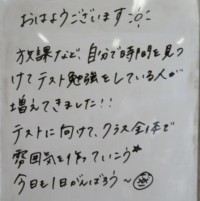 おはようございます
放課など、自分で時間を見つ
けてテスト勉強をしている人が
増えてきました!!
テストに向けて、クラス全体で
雰囲気を作っていこう
今日も1日がんばろう〜